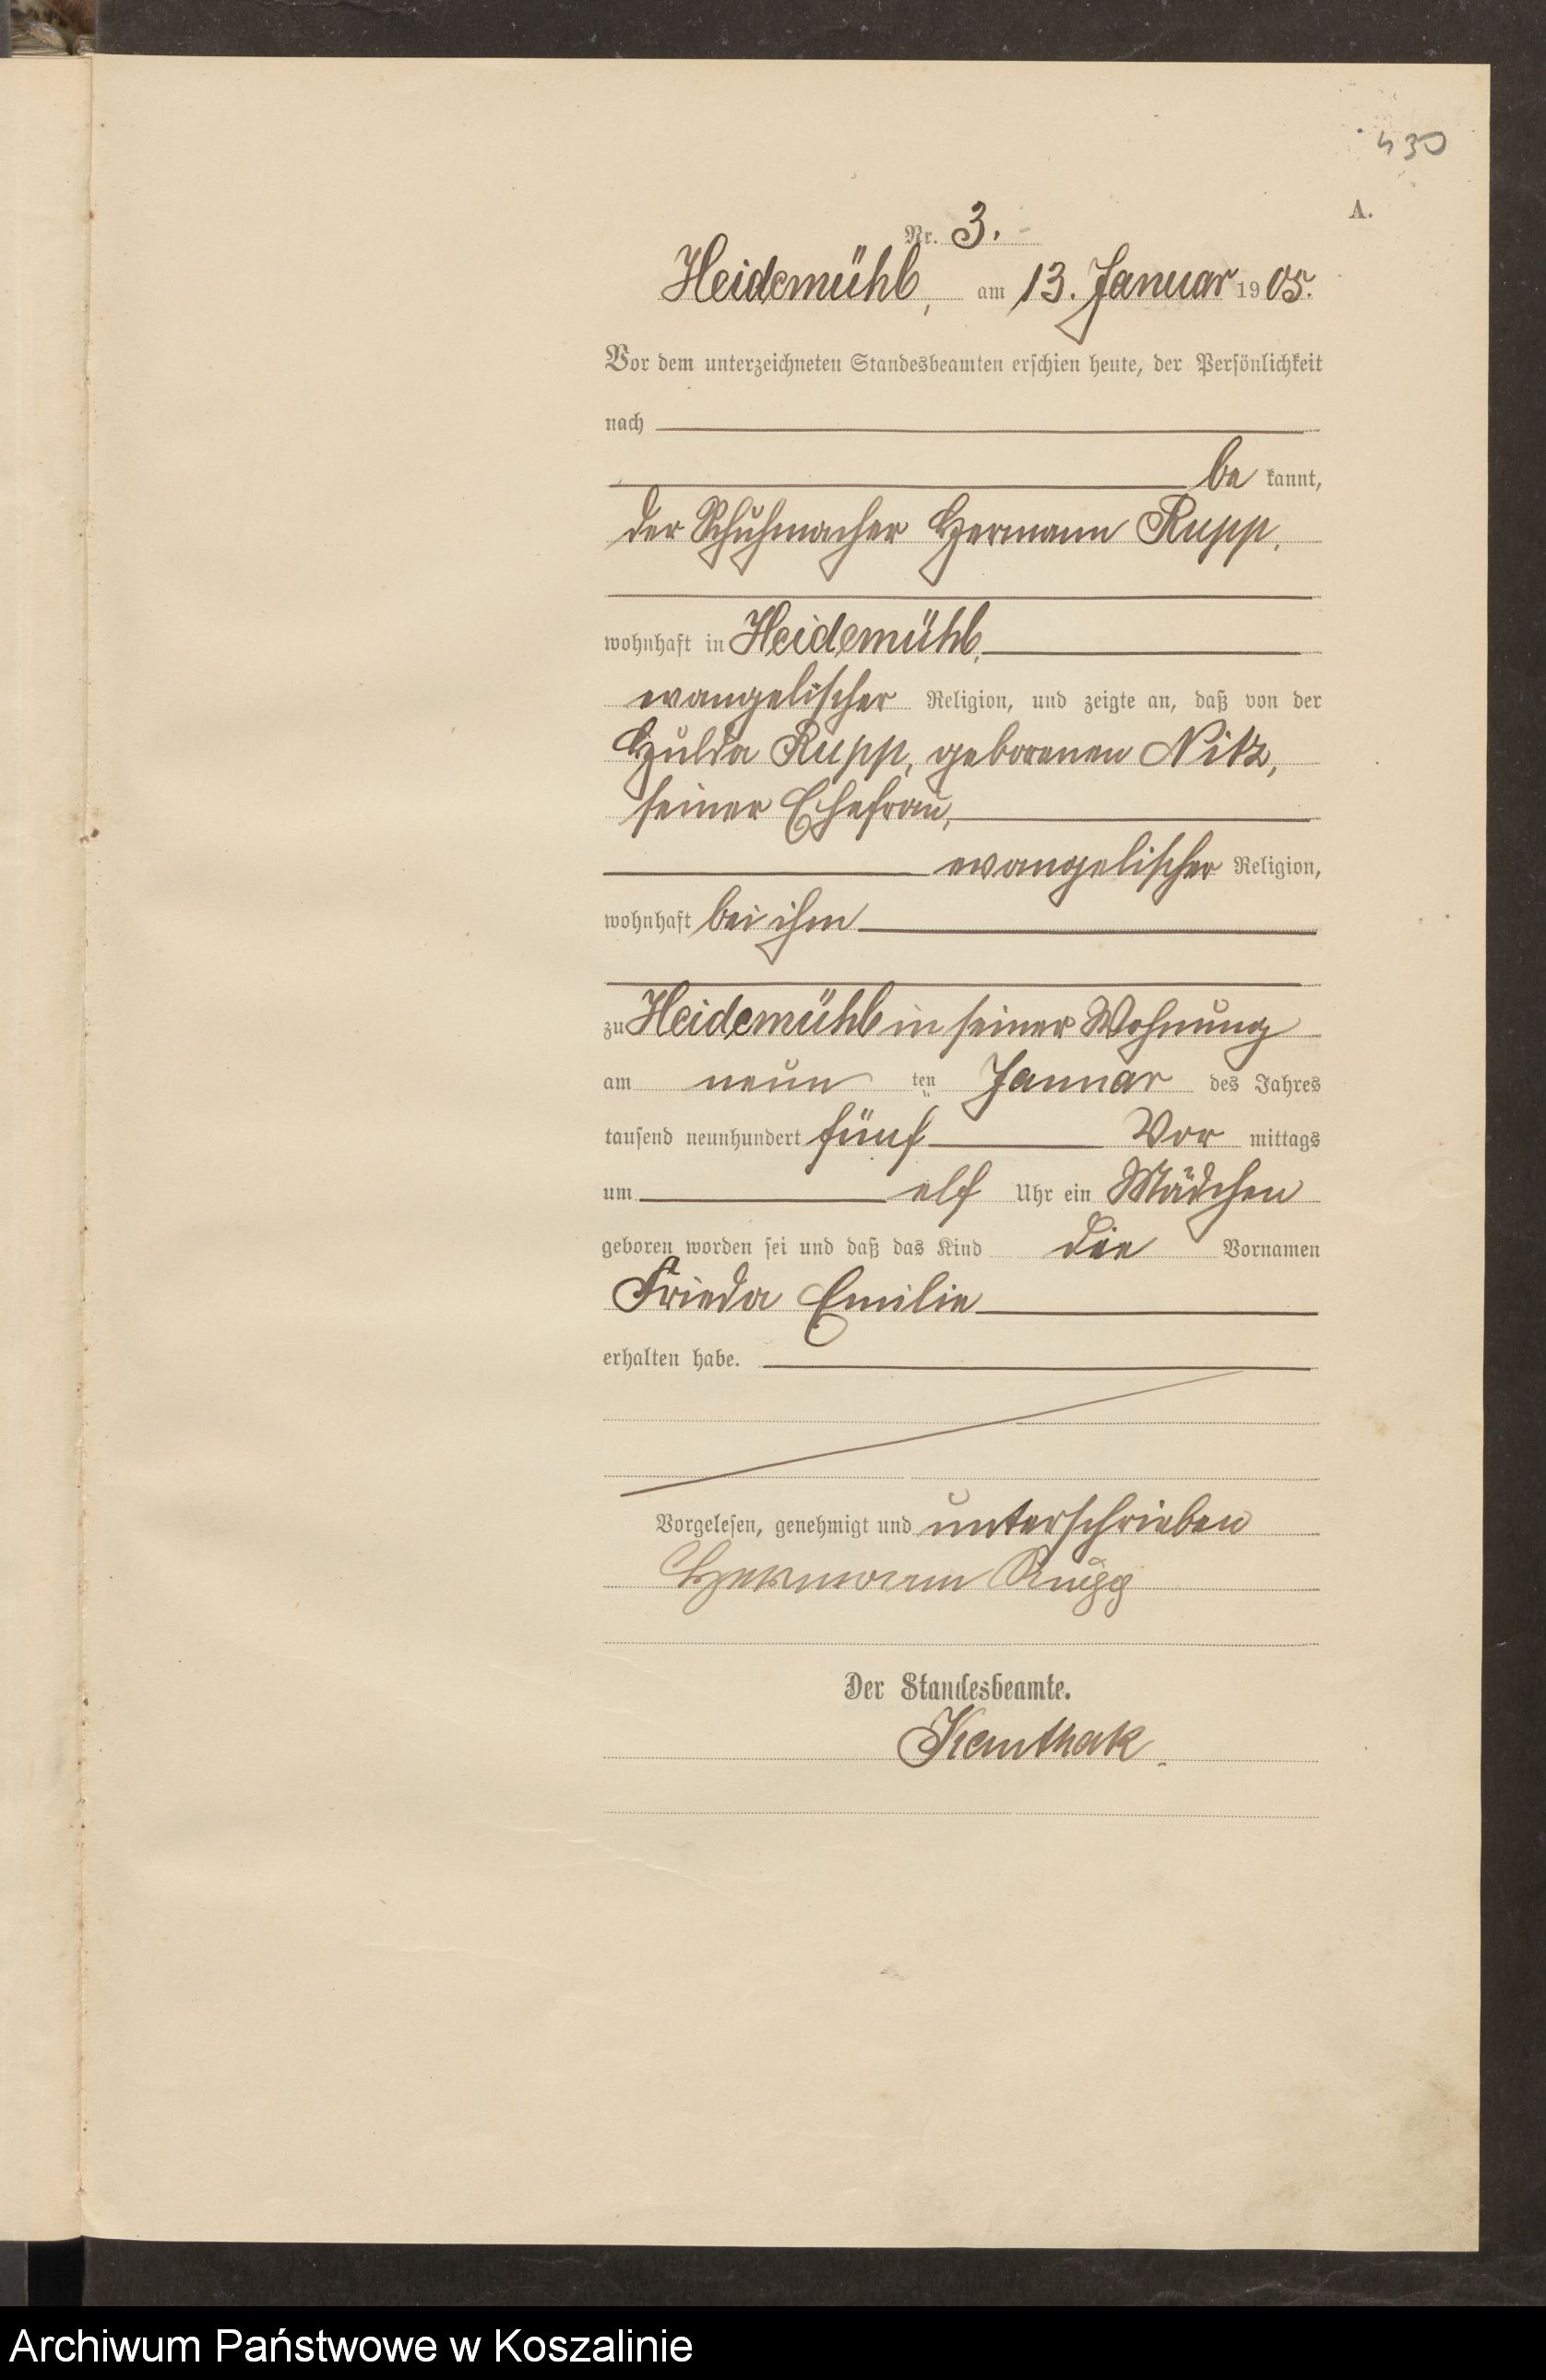 430
A.
Nr. 3.
Heidemühl, am 13. Januar 1905.
Vor dem unterzeichneten Standesbeamten erschien heute, der Persönlichkeit
nach
be kannt,
der Schuhmacher Hermann Rupp,
wohnhaft in Heidemühl,
evangelischer Religion, und zeigte an, daß von der
Hulda Rupp, geborenen Nitz,
seiner Ehefrau,
evangelischer Religion,
wohnhaft bei ihm
zu Heidemühl in seiner Wohnung
am neun ten Januar des Jahres
tausend neunhundert fünf Vor mittags
um elf Uhr ein Mädchen
geboren worden sei und daß das Kind die Vornamen
Frieda Emilie
erhalten habe.
Vorgelesen, genehmigt und unterschrieben
Hermann Rupp
Der Standesbeamte.
Archiwum Państwowe w Koszalinie